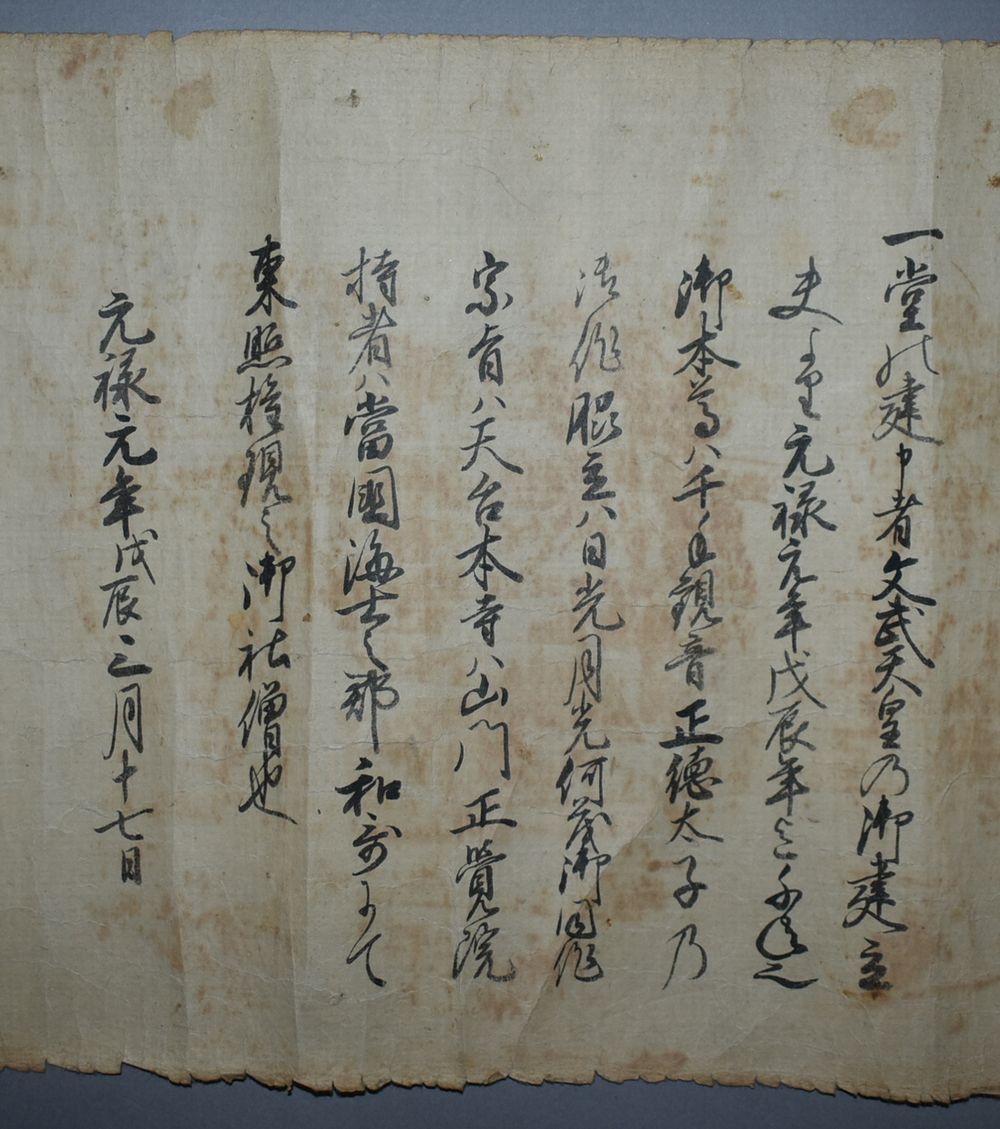 一堂の建申者文武天皇乃御建立
夫より元禄元年戊辰年迄千年之
御本尊ハ千手観音正徳太子乃
御作脇立ハ日光月光何茂御同作
宗旨ハ天台本寺ハ山門正覚院
持者ハ當國海士之郡和哥にて
東照権現之御社僧也
元禄元年戊辰三月十七日